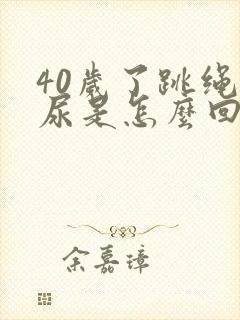 40歲了跳绳
尿是怎麼回
余嘉璋